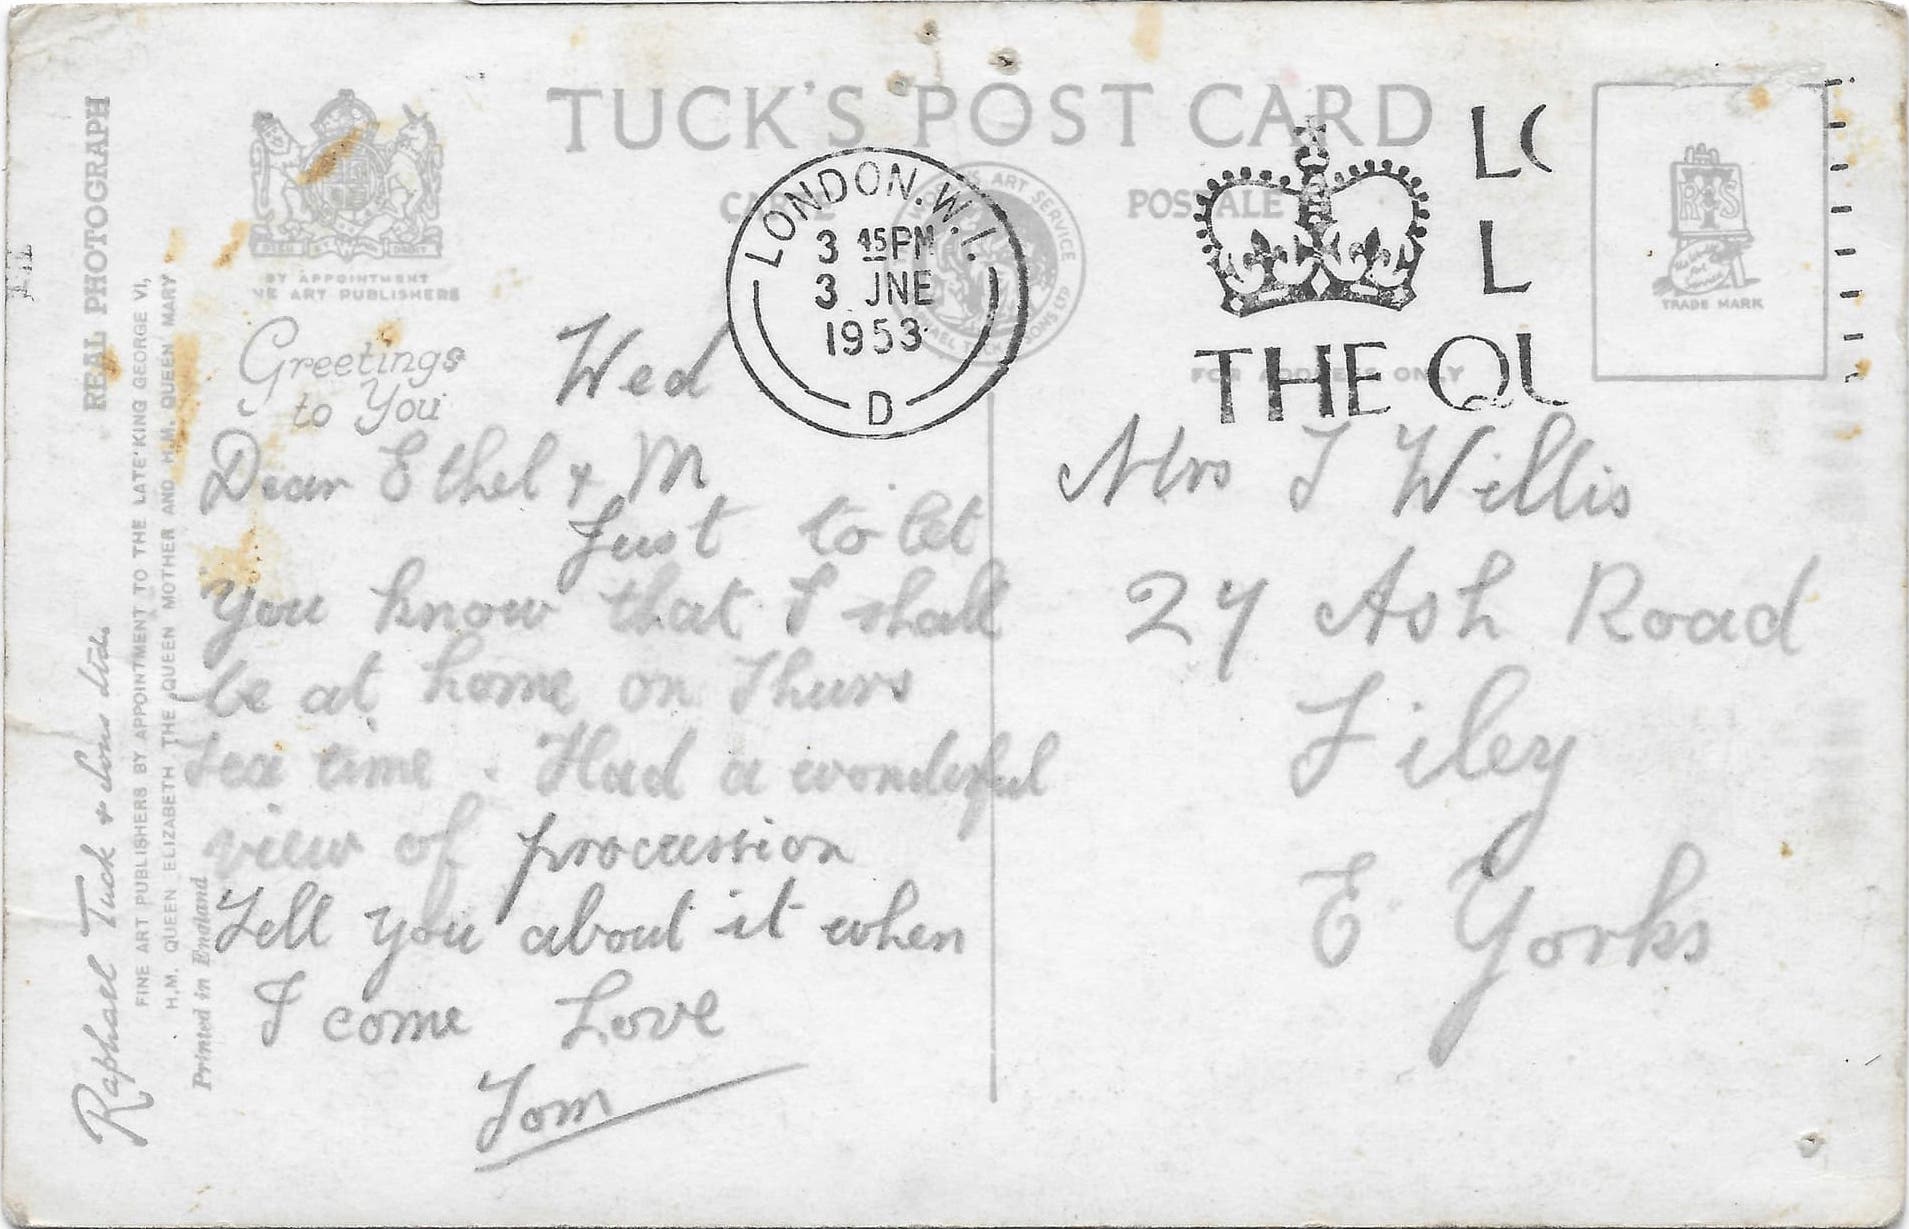 TUCK'S POST CARD
CARTE POSTALE
REAL PHOTOGRAPH
BY APPOINTMENT
ART PUBLISHERS
Greetings
to You
LONDON. W.1.
3 45 PM
3 JNE
1953
D
ART SERVICE
LO
L
THE QU
FOR ADDRESS ONLY
TRADE MARK
Wed
Dear Ethel & M
Just to let
you know that I shall
be at home on Thurs
tea time. Had a wonderful
view of procession
Tell you about it when
I come Love
Tom
Mrs T Willis
27 Ash Road
Filey
E Yorks
Raphael Tuck & Sons Ltd.
FINE ART PUBLISHERS BY APPOINTMENT TO THE LATE KING GEORGE VI,
H.M. QUEEN ELIZABETH THE QUEEN MOTHER AND H.M. QUEEN MARY
Printed in England